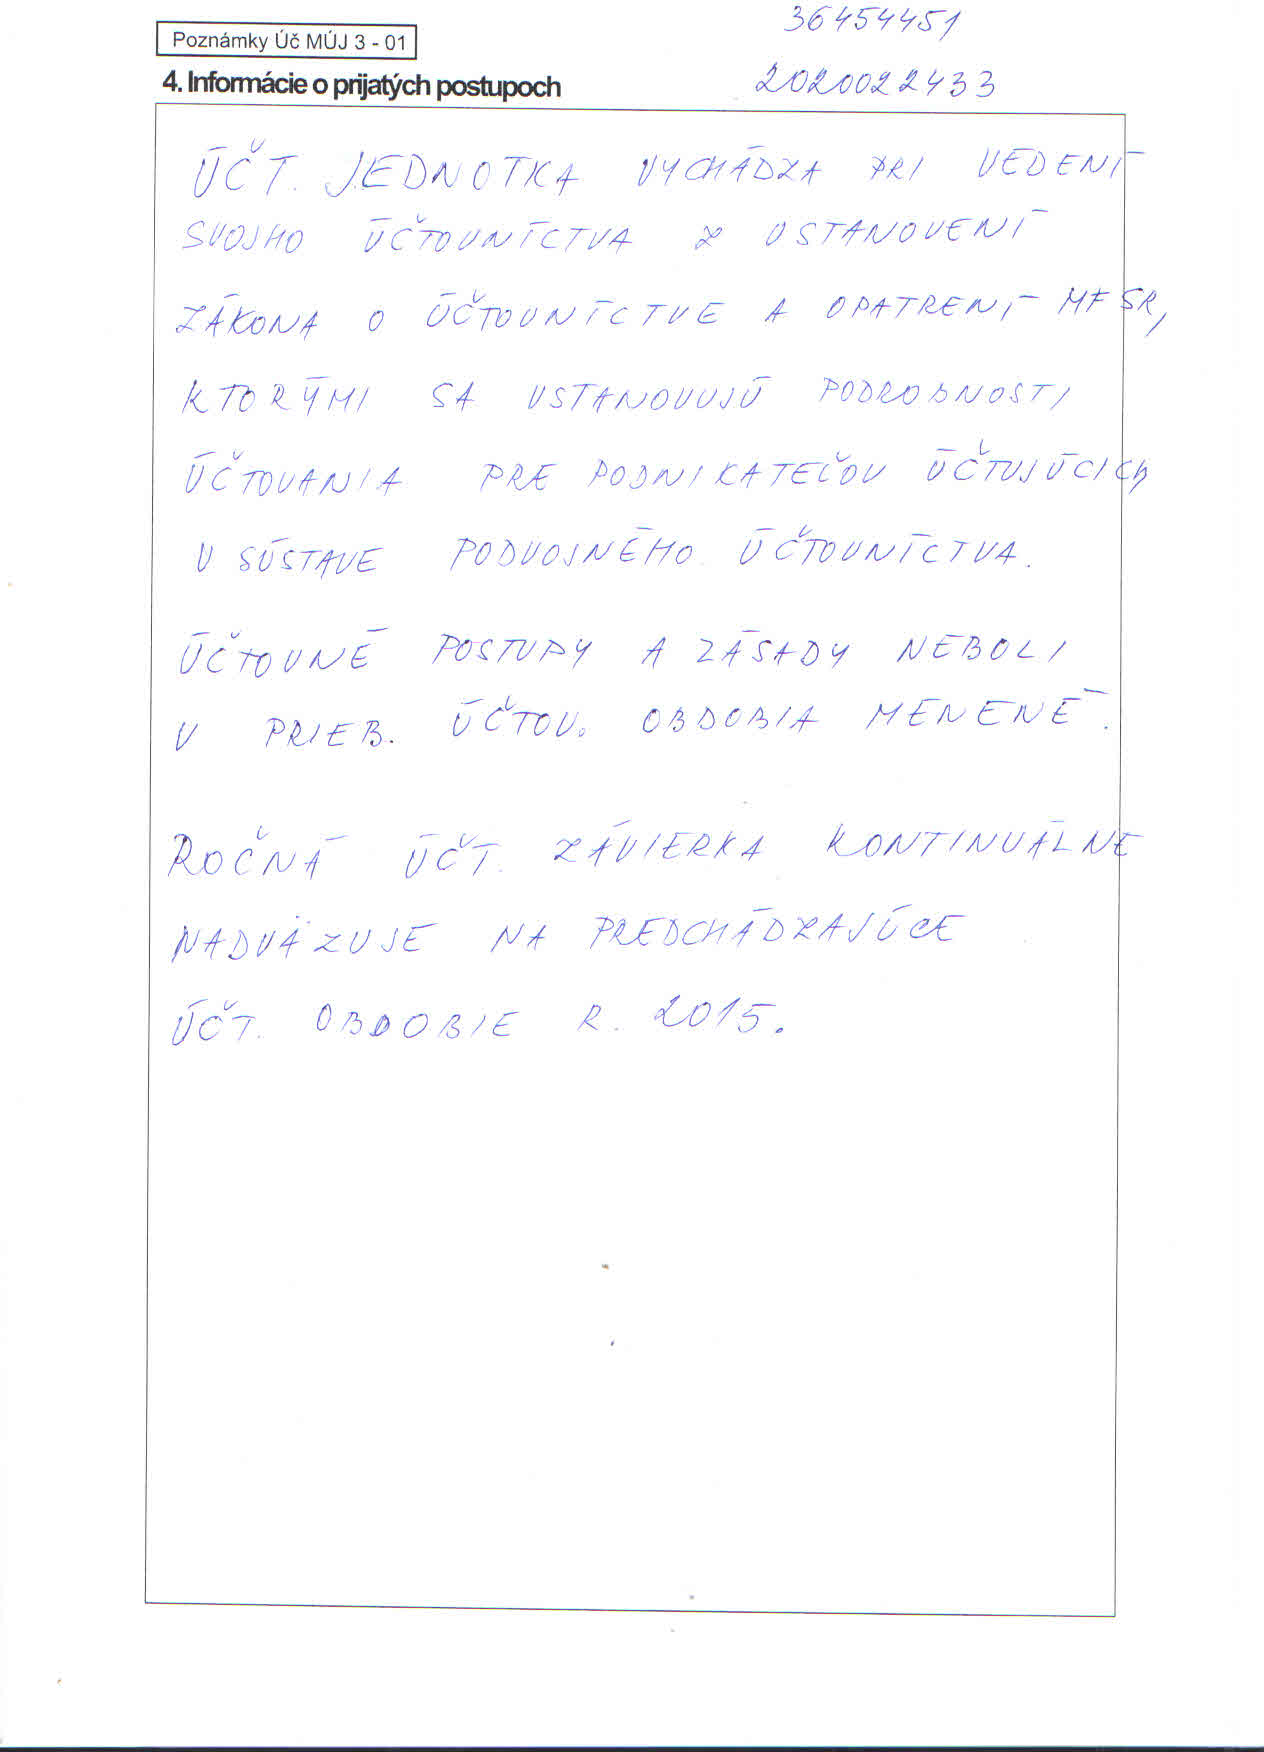 36454451
Poznámky Úč MÚJ 3 - 01
2020022433
4. Informácie o prijatých postupoch
ÚČT. JEDNOTKA VYCHÁDZA PRI VEDENÍ
SVOJHO ÚČTOVNÍCTVA Z USTANOVENÍ
ZÁKONA O ÚČTOVNÍCTVE A OPATRENÍ MF SR,
KTORÝMI SA USTANOVUJÚ PODROBNOSTI
ÚČTOVANIA PRE PODNIKATEĽOV ÚČTUJÚCICH
V SÚSTAVE PODVOJNÉHO ÚČTOVNÍCTVA.
ÚČTOVNÉ POSTUPY A ZÁSADY NEBOLI
V PRIEB. ÚČTOV. OBDOBIA MENENÉ.
ROČNÁ ÚČT. ZÁVIERKA KONTINUÁLNE
NADVÄZUJE NA PREDCHÁDZAJÚCE
ÚČT. OBDOBIE R. 2015.